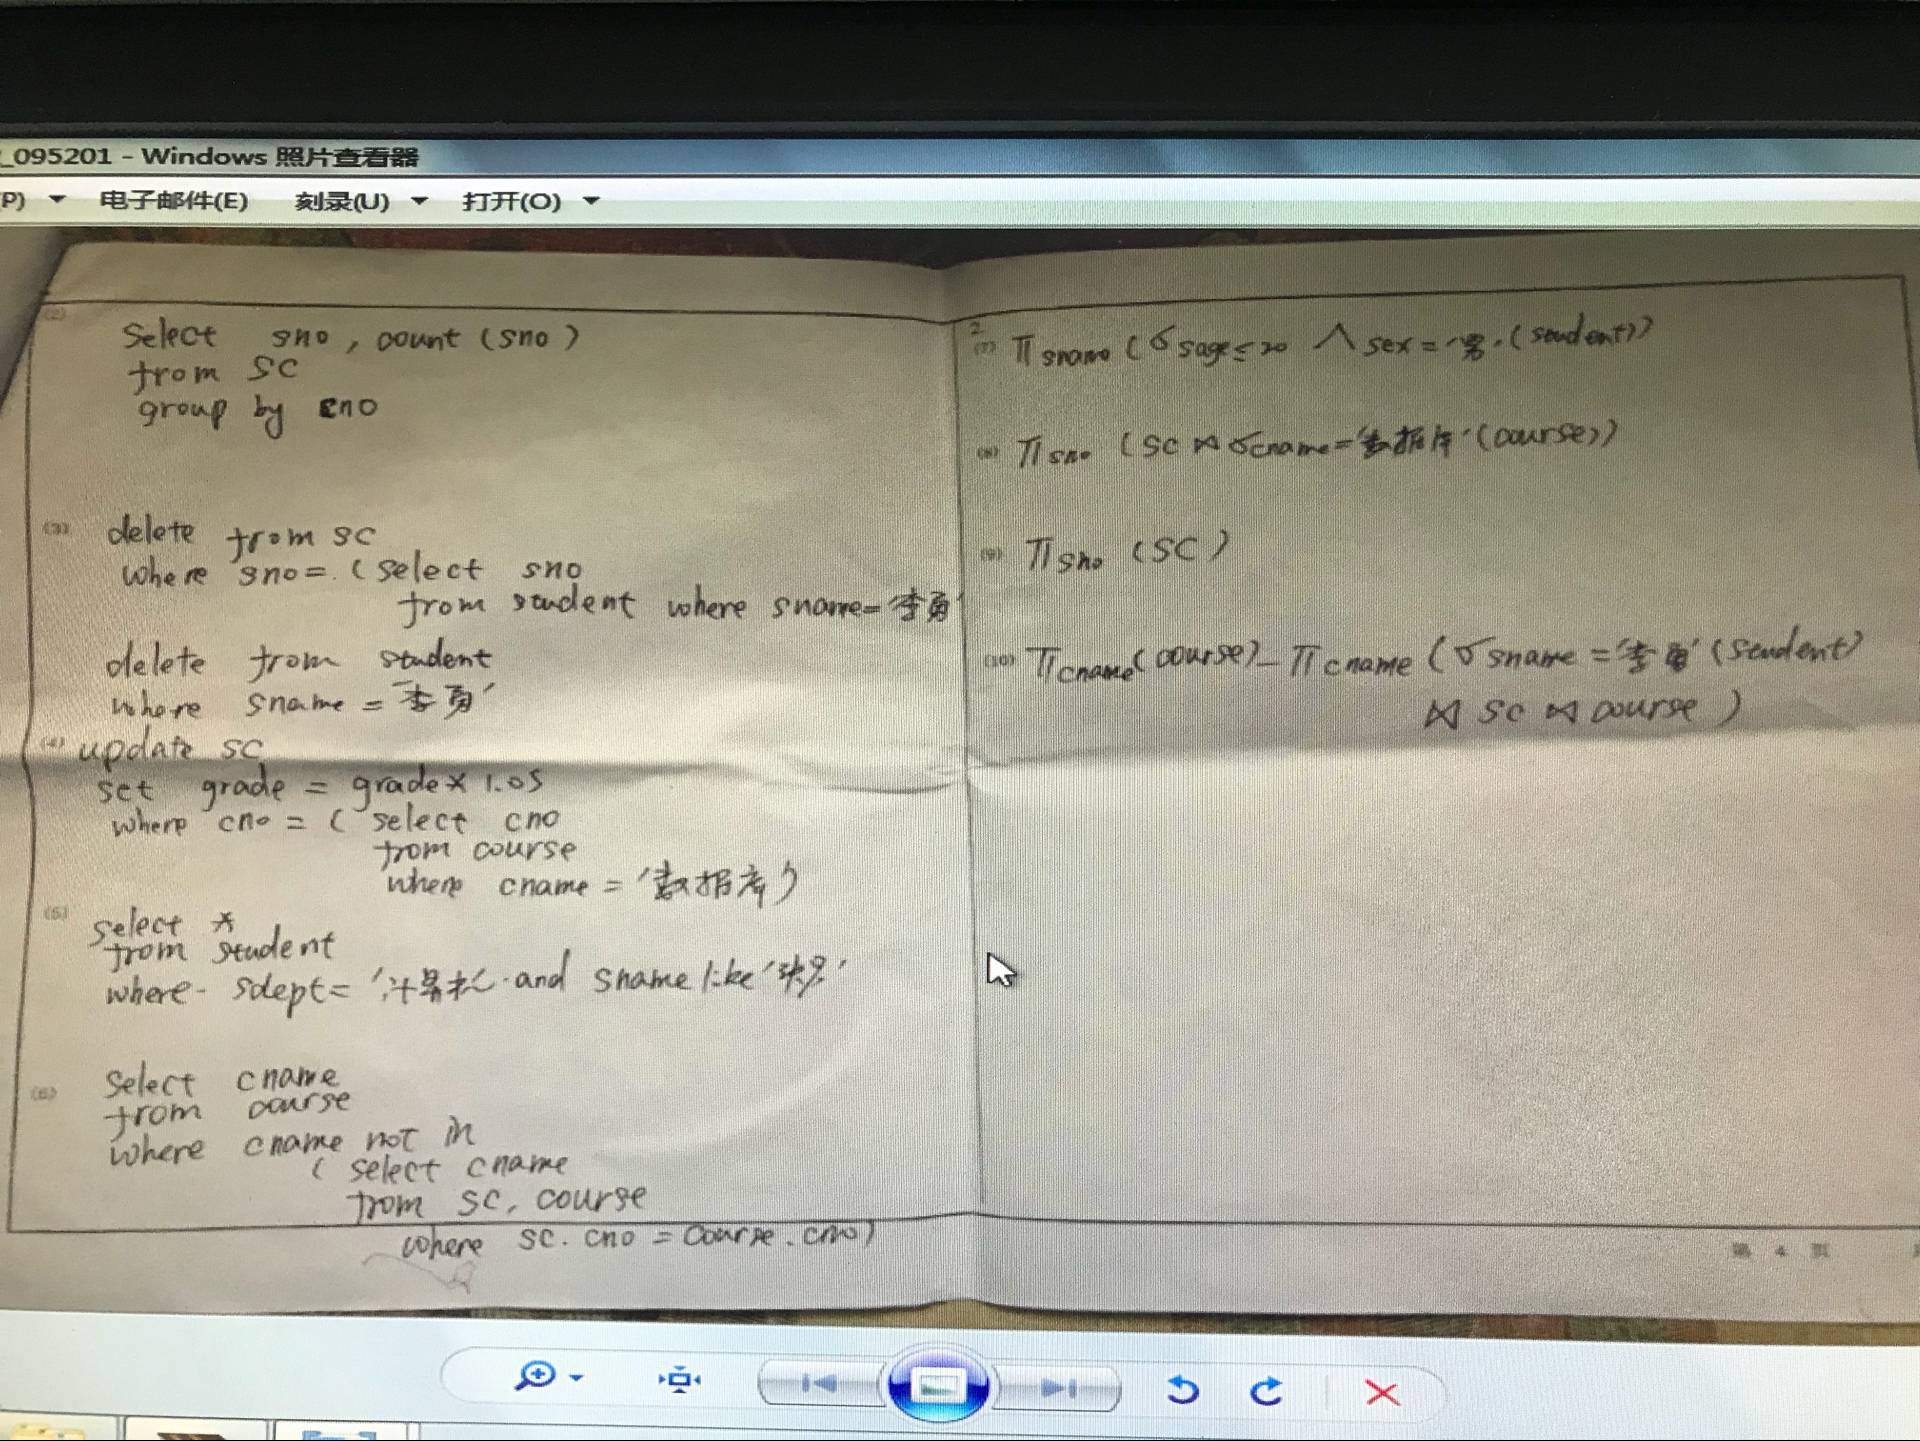 _095201 - Windows 照片查看器
P) 电子邮件(E) 刻录(U) 打开(O)
(2)
Select sno, count (sno)
from SC
group by cno
(3) delete from SC
where sno= (select sno
from student where sname='李勇'
delete from student
where sname = '李勇'
(4) update SC
set grade = grade × 1.05
where cno = ( select cno
from course
where cname = '数据库')
(5) select *
from student
where sdept= '计算机' and sname like '张%'
(6) select cname
from course
where cname not in
( select cname
from SC, course
where SC. cno = Course. cno)
2.
(7) Π sname (σ sage≤20 ∧ sex='男' (student))
(8) Π sno (SC ⋈ σcname='数据库' (course))
(9) Π sno (SC)
(10) Π cname (course) - Π cname (σ sname = '李勇' (student)
⋈ SC ⋈ course )
第 4 页